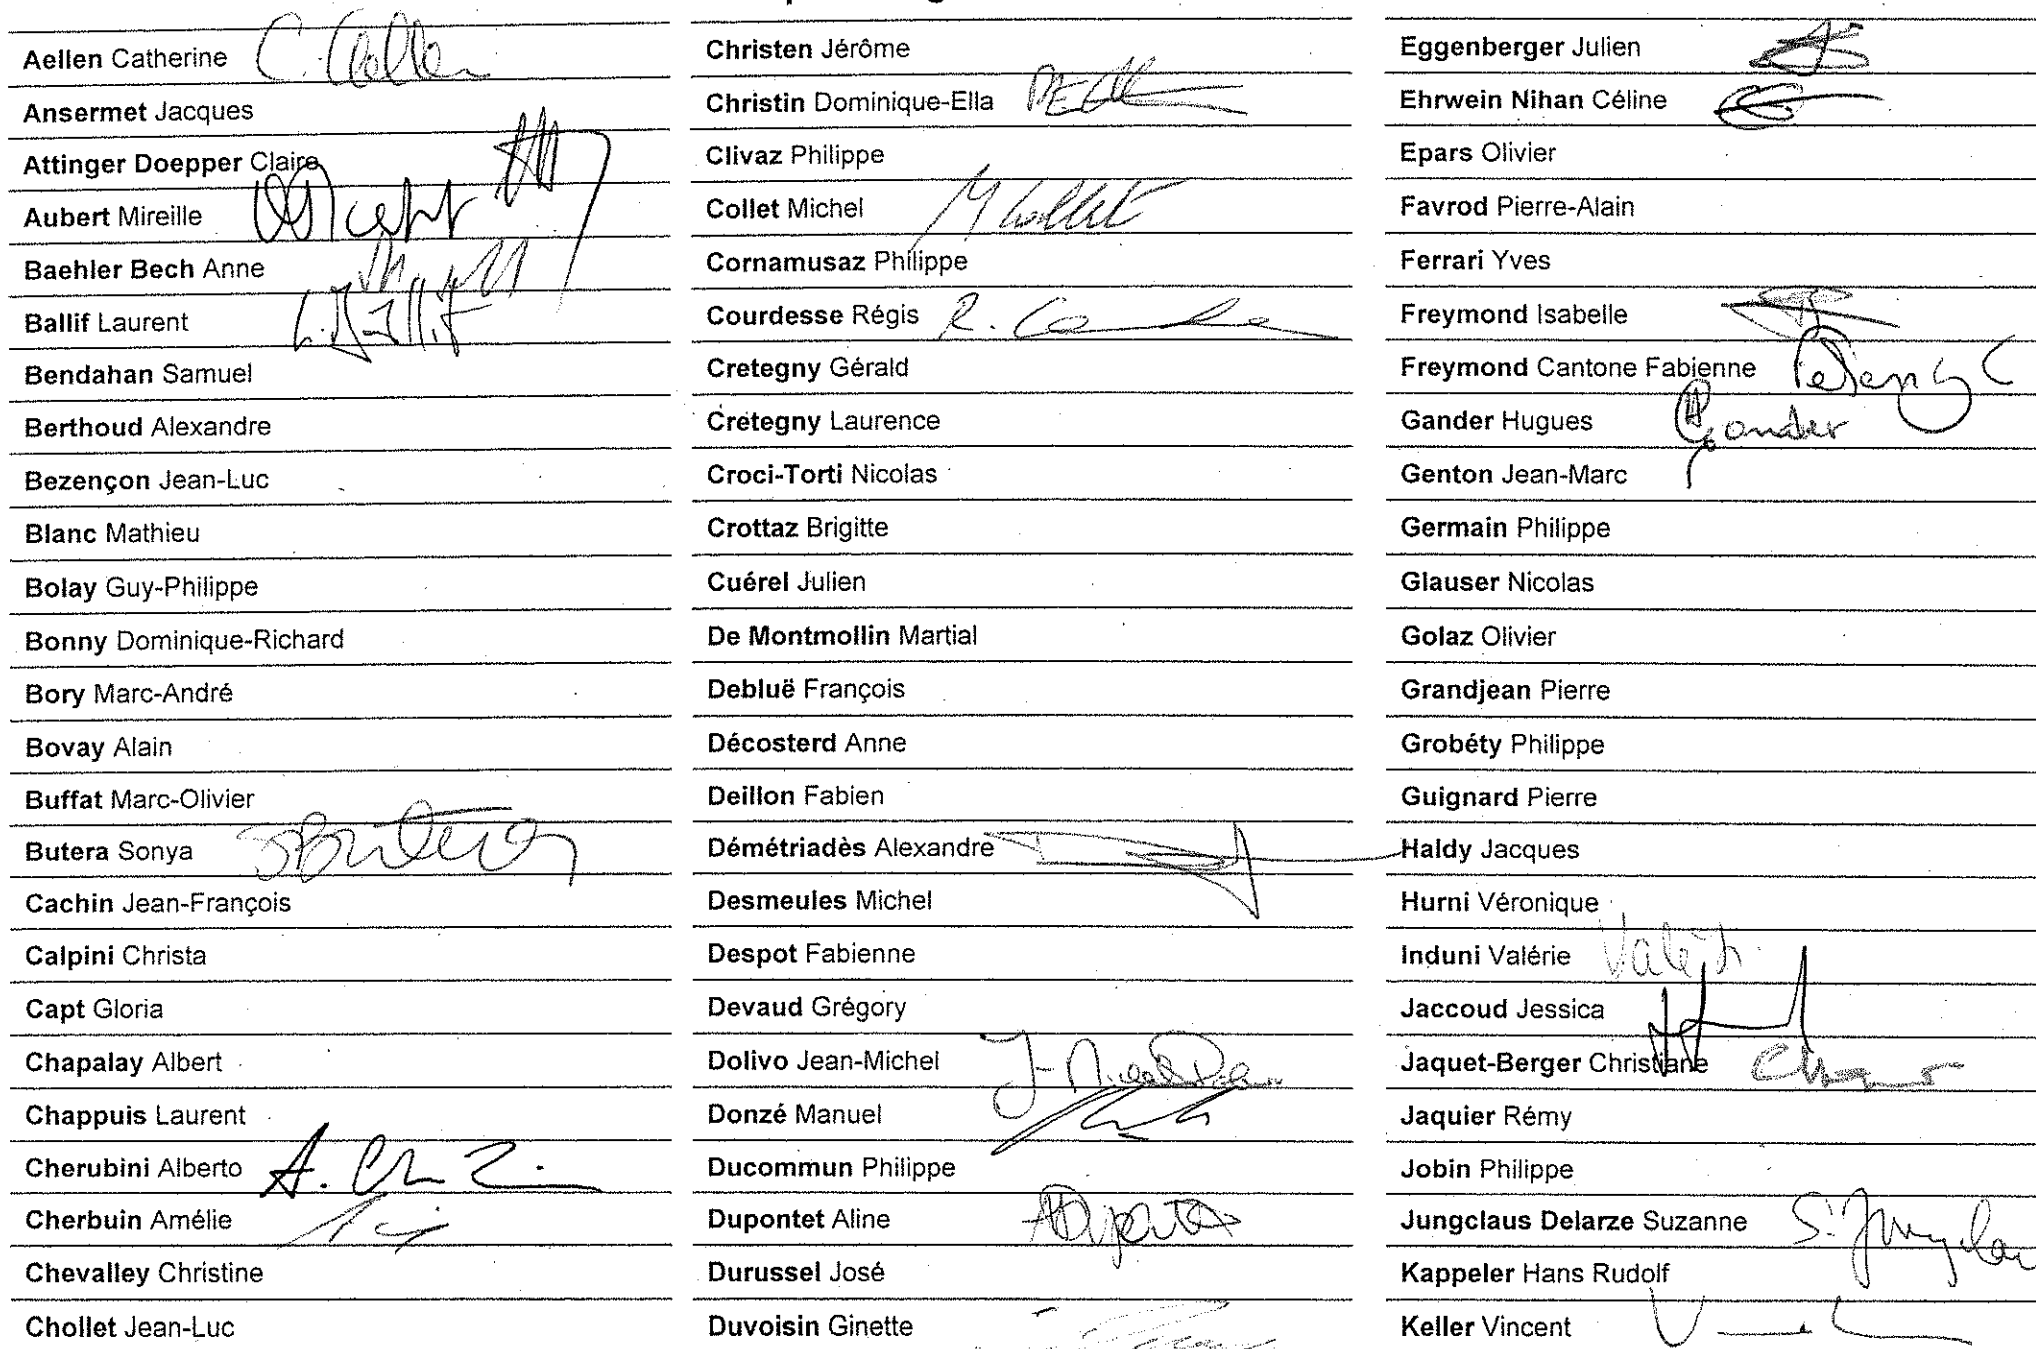 Aellen Catherine C. Aellen
Ansermet Jacques
Attinger Doepper Claire
Aubert Mireille
Baehler Bech Anne
Ballif Laurent L. Ballif
Bendahan Samuel
Berthoud Alexandre
Bezençon Jean-Luc
Blanc Mathieu
Bolay Guy-Philippe
Bonny Dominique-Richard
Bory Marc-André
Bovay Alain
Buffat Marc-Olivier
Butera Sonya SButera
Cachin Jean-François
Calpini Christa
Capt Gloria
Chapalay Albert
Chappuis Laurent
Cherubini Alberto
Cherbuin Amélie
Chevalley Christine
Chollet Jean-Luc
Christen Jérôme
Christin Dominique-Ella
Clivaz Philippe
Collet Michel M Collet
Cornamusaz Philippe
Courdesse Régis
Cretegny Gérald
Cretegny Laurence
Croci-Torti Nicolas
Crottaz Brigitte
Cuérel Julien
De Montmollin Martial
Debluë François
Décosterd Anne
Deillon Fabien
Démétriadès Alexandre
Desmeules Michel
Despot Fabienne
Devaud Grégory
Dolivo Jean-Michel
Donzé Manuel
Ducommun Philippe
Dupontet Aline ADupontet
Durussel José
Duvoisin Ginette
Eggenberger Julien
Ehrwein Nihan Céline
Epars Olivier
Favrod Pierre-Alain
Ferrari Yves
Freymond Isabelle
Freymond Cantone Fabienne
Gander Hugues Gander
Genton Jean-Marc
Germain Philippe
Glauser Nicolas
Golaz Olivier
Grandjean Pierre
Grobéty Philippe
Guignard Pierre
Haldy Jacques
Hurni Véronique
Induni Valérie
Jaccoud Jessica
Jaquet-Berger Christiane
Jaquier Rémy
Jobin Philippe
Jungclaus Delarze Suzanne
Kappeler Hans Rudolf
Keller Vincent